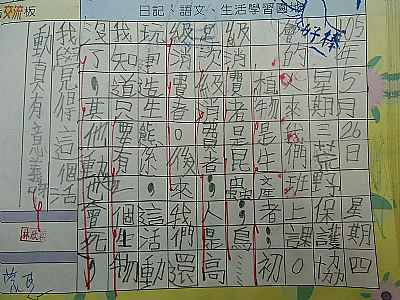 交流板
日記、語文、生活學習園地
好棒
105年5月26日星期四
星期三荒野保護協
會的人來我們班上課。
植物是生產者;初
級消費者是昆蟲;鳥
級消費者。後來,我們還
玩建造生態係,這活動
我知道只要有一個生物
沒了,其
動物會死,
我覺得這個活
動真有意義